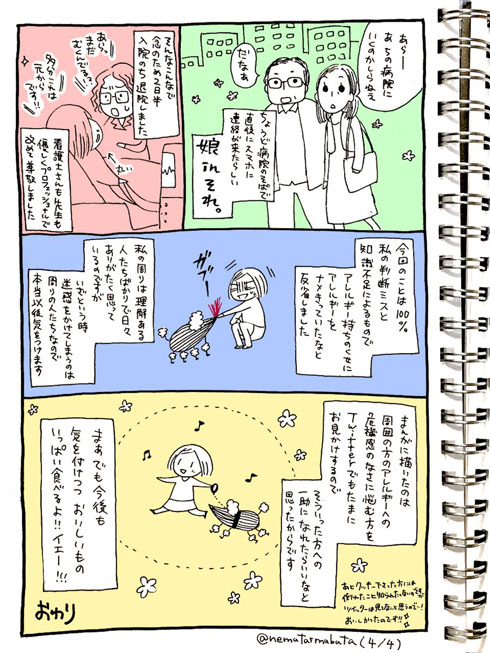 あらー
あちらの病院に
いくのかしらねえ
だなあ
ちょうど病院のそばで
直後にスマホに
連絡が来たらしい
娘inそれ。
てんなこんなで
念のため2日半
入院のち退院しました
あら。
まだ
むくんでる!?
多分これは
元から
です!!
丸い
看護士さんも先生も
優しくプロフェッショナルで
改めて尊敬しました
今回のことは100%
私の判断ミスと
知識不足によるもので
アレルギー持ちのくせに
アレルギーを
ナメきっていたなと
反省しました
ガブー
私の周りは理解ある
人たちばかりで日々
ありがたく思って
いるのですが
いざという時
迷惑をかけてしまうのは
周りの人たちなので
本当以後気をつけます
まんがに描いたのは
周囲の方のアレルギーへの
危機感のなさに悩む方を
Twitterでもたまに
お見かけするので
そういった方への
一助になれたらいいなと
思ったからです
まあでも今後も
気を付けつつ おいしいもの
いっぱい食べるよ!!イエー!!!
おいしかったのです!!
おわり
@nemutarmabuta (4/4)